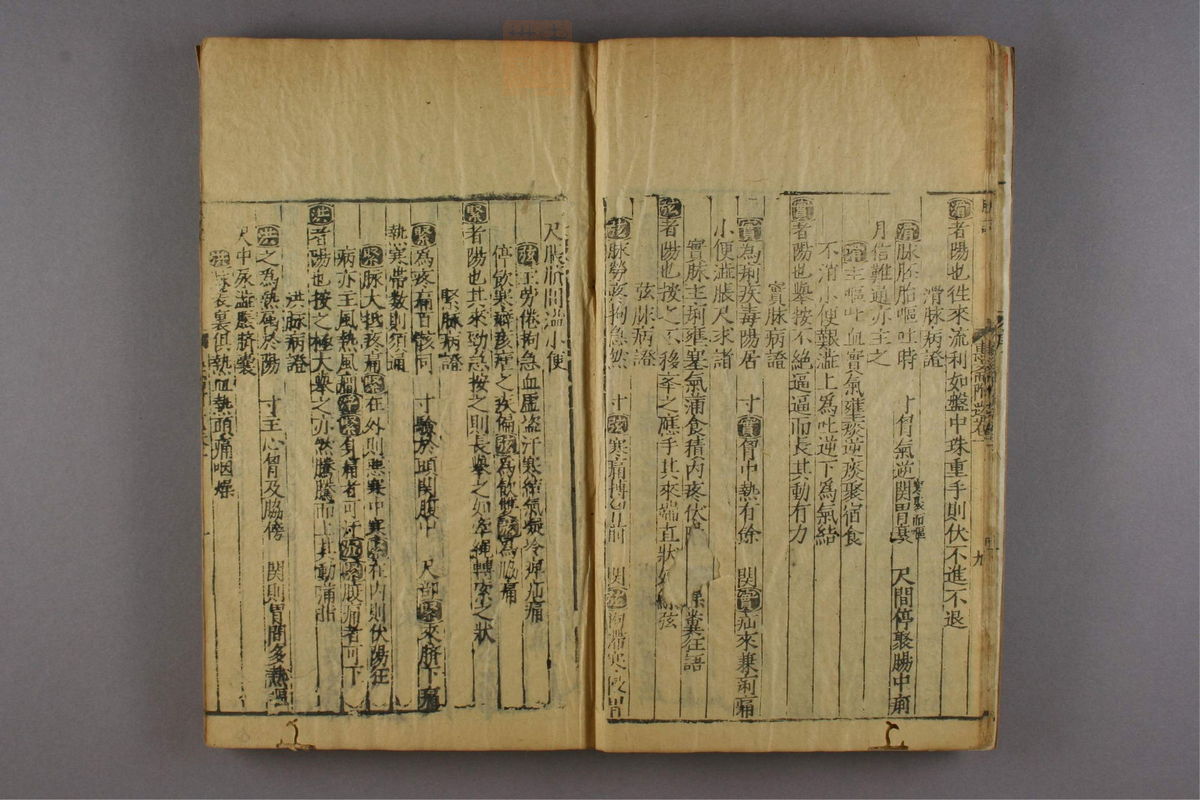 滑者陽也徃來流利如盤中珠重手則伏不進不退
滑脉病證
滑脉胚胎嘔吐時 寸胷氣逆関胃裏 寒聚而嘔 尺間停聚腸中痢
月信難通亦主之
滑主嘔吐血實氣雍痰逆癈聚宿食
不消小便艱澁上為吐逆下為氣結
實者陽也舉按不絕逼逼而長其動有力
實脉病證
實為痢疾毒陽居 寸實胷中熱有餘 関實疝來兼痢痛
小便澁脹尺求諸
實脉主痢雍塞氣蒲食積內疼伏陽 糞狂語
弦者陽也按之不移舉之應手其來端直狀如絲弦
弦脉病證
弦脉勞疼拘急然 寸弦寒痛搏胷前 関弦 滯寒侵胃
尺脹臍間澁小便
弦主勞倦拘急血虛盗汗寒結氣凝冷痺疝痛
停飲寒癖痎瘧之疾偏弦為飲雙弦為脇痛
緊者陽也其來勁急按之則長舉之如牽繩轉索之狀
緊脉病證
緊為疼痛百骸同 寸驗於頭関腹中 尺部緊來臍下痛
熱寒帶數則須通
緊脉大抵疼痛緊在外則惡寒中寒緊在內則伏陽狂
病亦主風熱風癎浮緊身痛者可汗沉緊腹痛者可下
洪者陽也按之極大舉之亦然騰騰而上其動痛
洪脉病證
洪之為熱 於陽 寸主心胷及脇傍 関則胃間多熱
尺中尿澁應臍裳
洪 表裏俱熱血熱頭痛咽燥
九